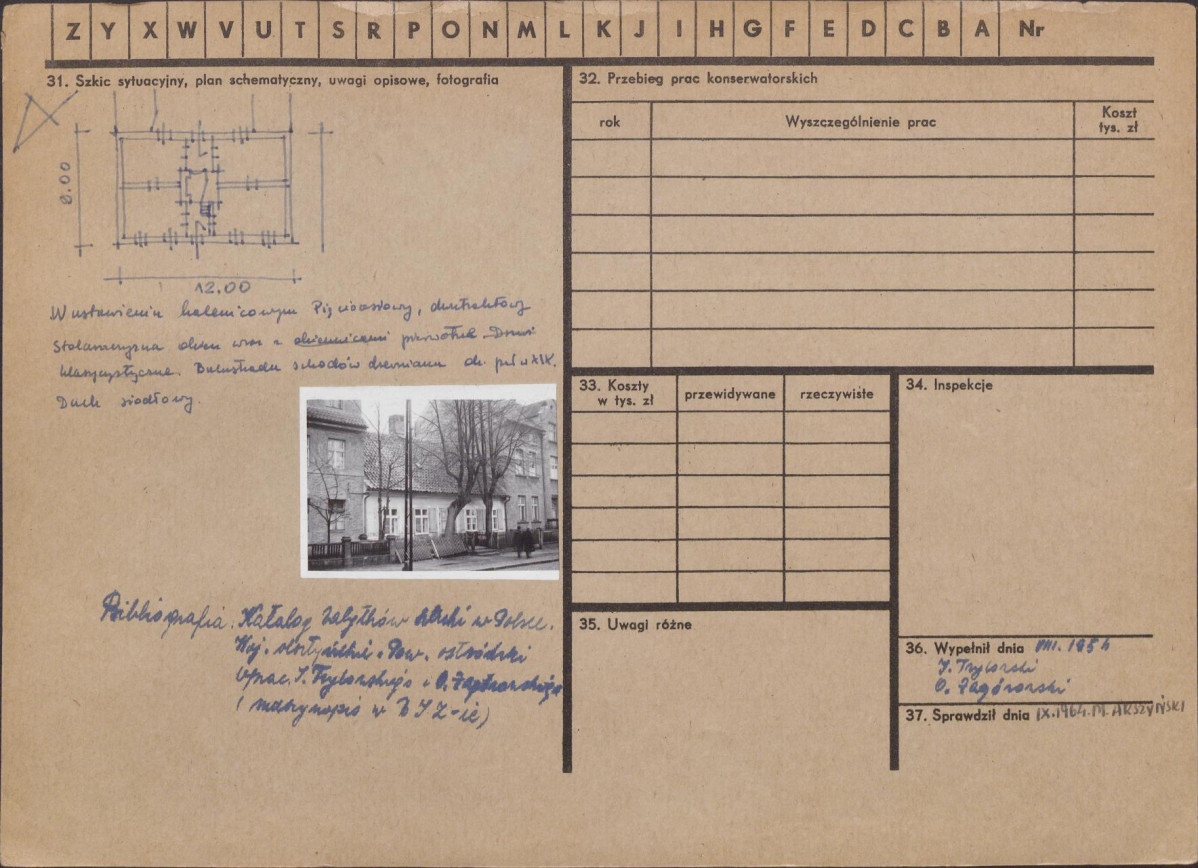 Z Y X W V U T S R P O N M L K J I H G F E D C B A Nr
31. Szkic sytuacyjny, plan schematyczny, uwagi opisowe, fotografia
8.00
12.00
W ustawieniu kalenicowym Pięcioosiowy, dwutraktowy
Stolarszczyzna okien wraz z okiennicami pierwotna. Drzwi
klasycystyczne. Balustrada schodów drewniana ok. poł w XIX.
Dach siodłowy.
Bibliografia. Katalog Zabytków sztuki w Polsce.
Woj. olsztyńskie. Pow. ostródzki
Oprac. J. i O. Zagórowskiego
(maszynopis w
32. Przebieg prac konserwatorskich
rok
Wyszczególnienie prac
Koszt
tys. zł
33. Koszty
w tys. zł
przewidywane
rzeczywiste
34. Inspekcje
35. Uwagi różne
36. Wypełnił dnia VIII.
J.
O. Zagórowski
37. Sprawdził dnia IX.1964. M. ARSZYŃSKI